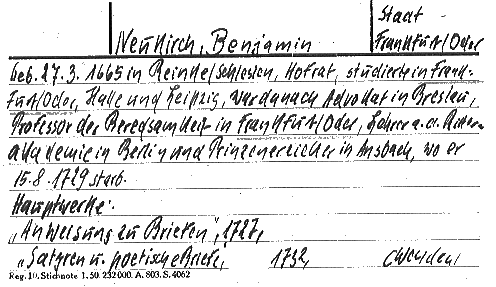 Staat
Neukirch, Benjamin Frankfurt/Oder
geb. 27.3.1665 in Reinke/Schlesien, Hofrat, studierte in Frank-
furt/Oder, Halle und Leipzig, war danach Advokat in Breslau,
Professor der Beredsamkeit in Frankfurt/Oder, Lehrer a.d. Ritter-
akademie in Berlin und Prinzenerzieher in Ansbach, wo er
15.8.1729 starb.
Hauptwerke:
"Anweisung zu Briefen", 1727,
"Satyren u. poetische Briefe, 1732,
Reg. 10. Stichnote 1. 50. 232000. A. 803. S. 4062